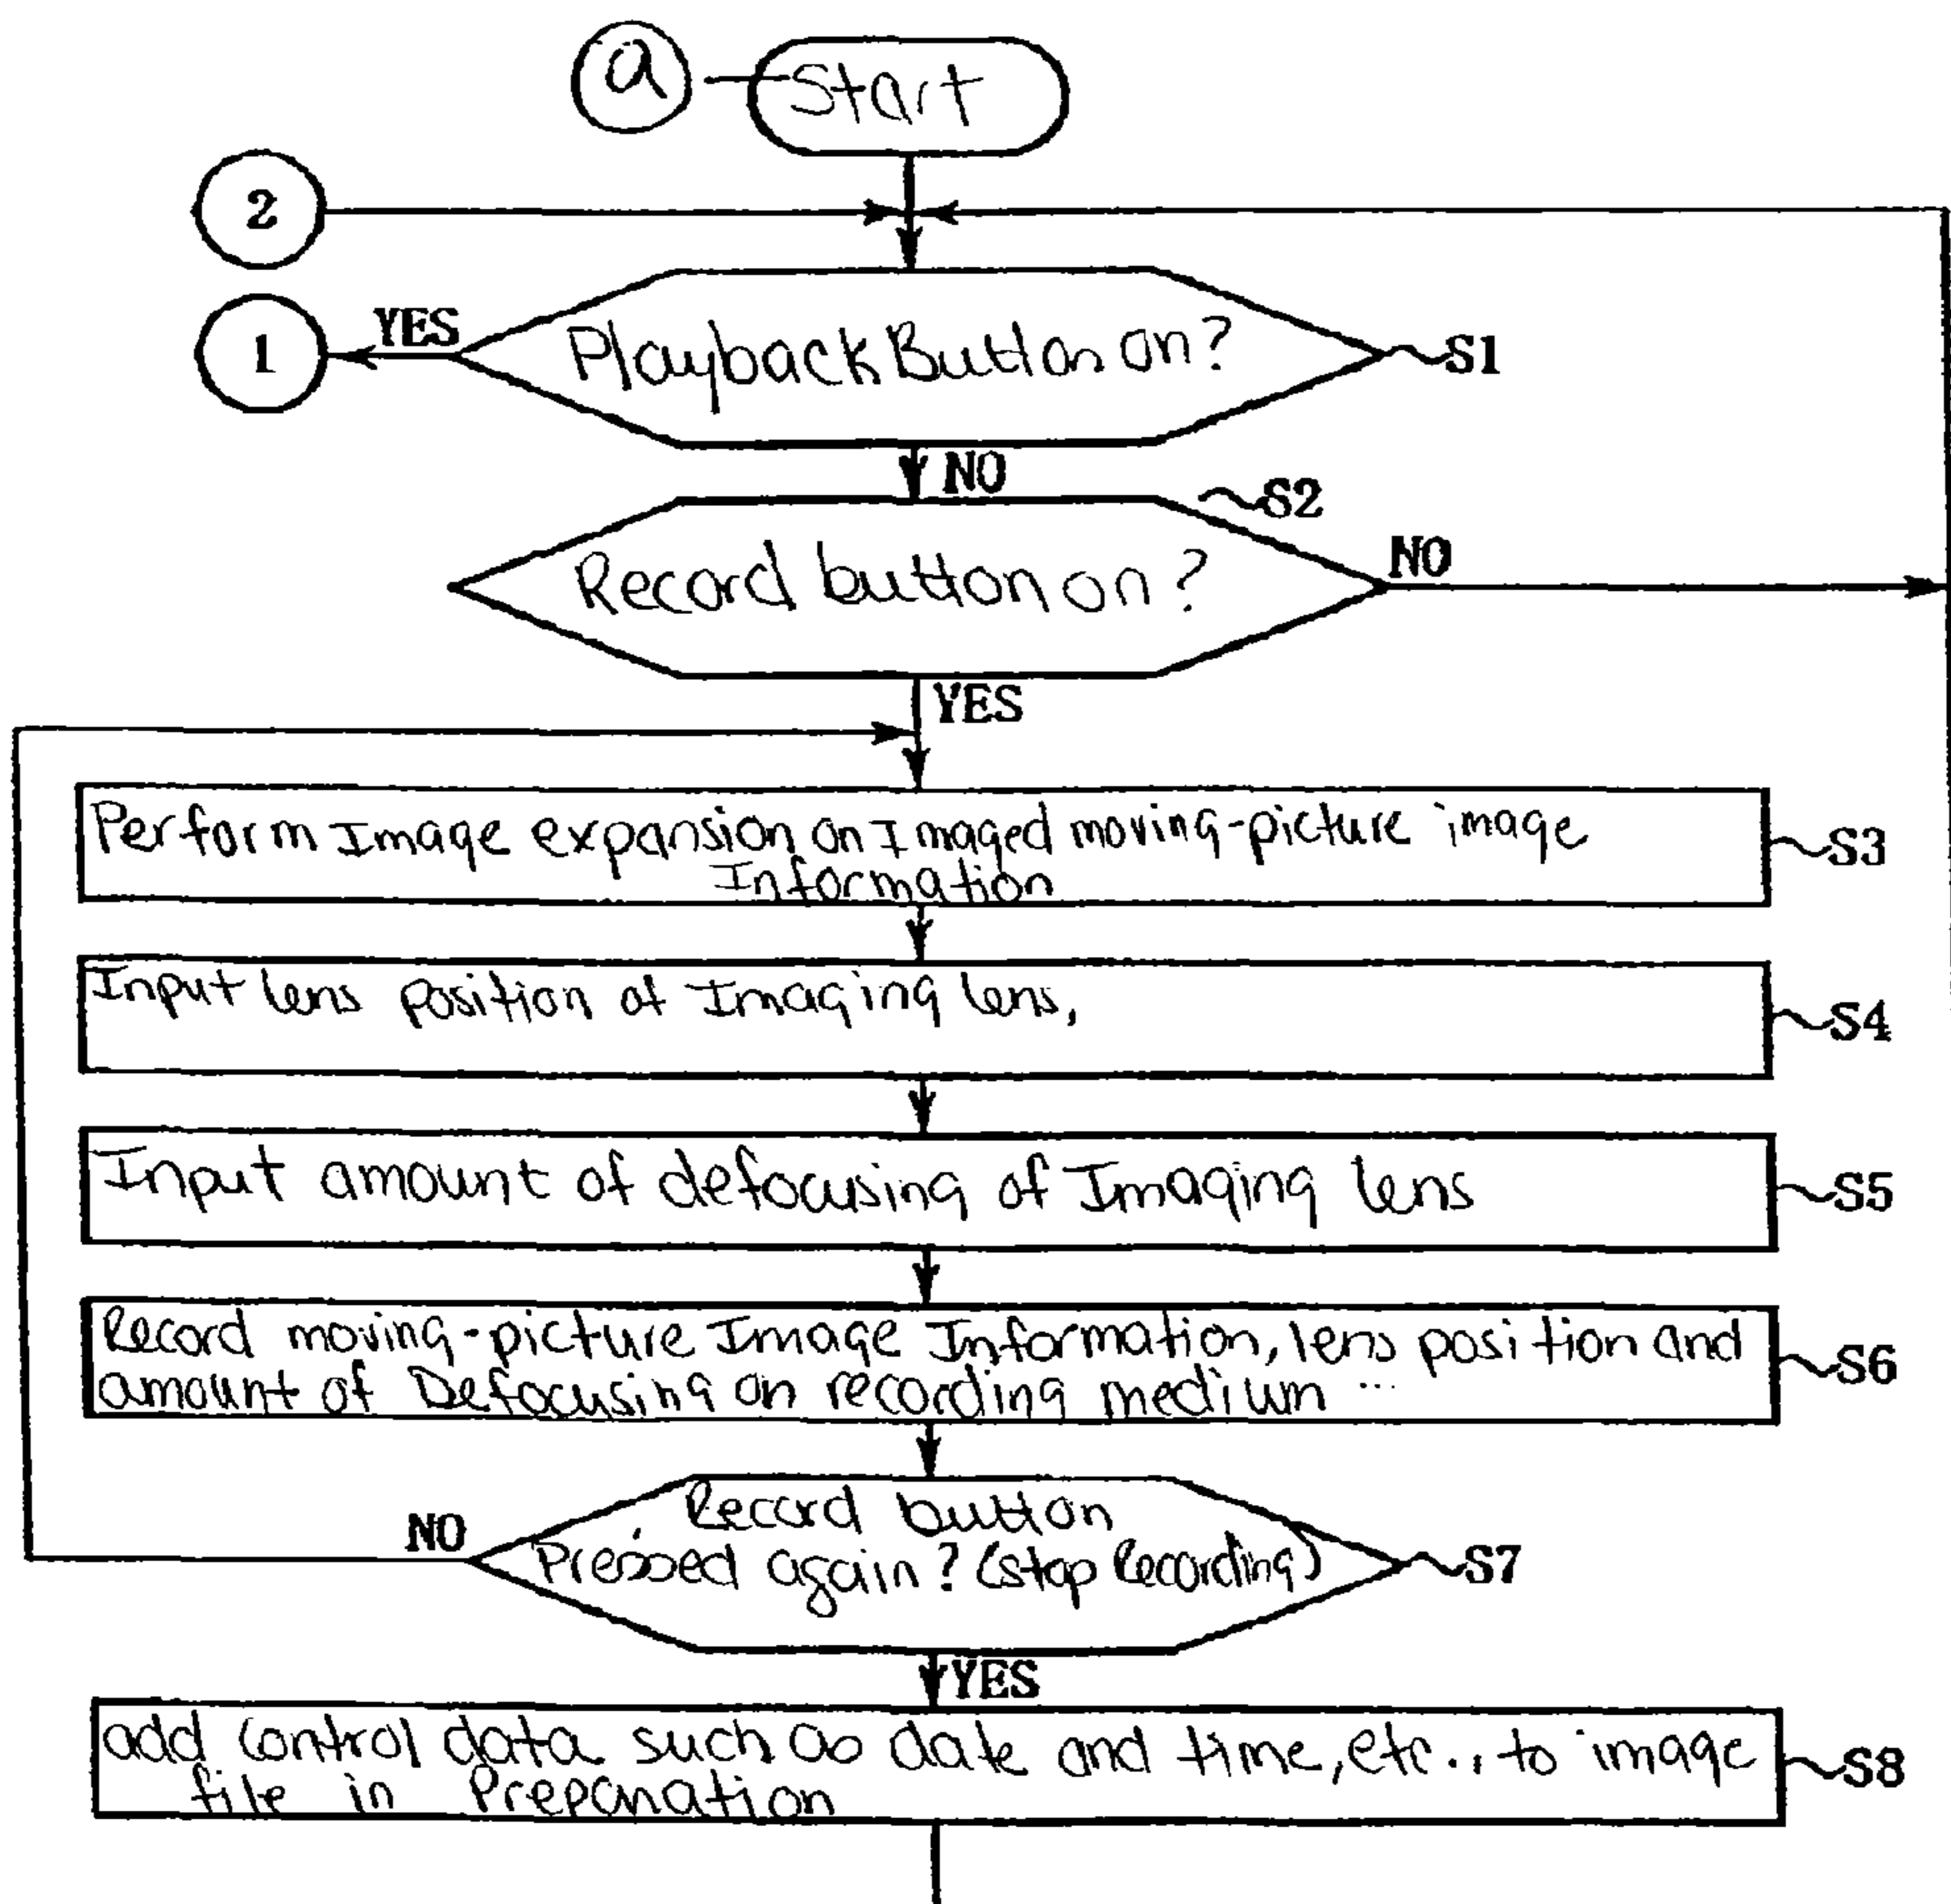 a
Start
2
1
YES
Playback Button on?
S1
NO
S2
Record button on?
NO
YES
Perform Image expansion on Imaged moving-picture image
Information
S3
Input lens position of Imaging lens,
S4
Input amount of defocusing of Imaging lens
S5
Record moving-picture Image Information, lens position and
amount of Defocusing on recording medium ...
S6
NO
Record button
Pressed again? (stop Recording)
S7
YES
add control data such as date and time, etc., to image
file in Preparation
S8